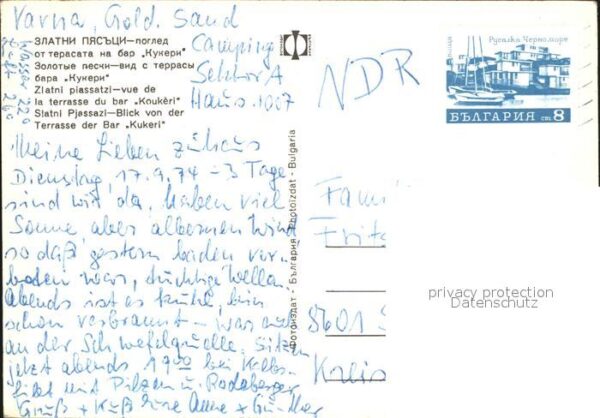 Varna, Gold. Sand
ЗЛАТНИ ПЯСЪЦИ—поглед
от терасата на бар „Кукери"
Золотые пески—вид с террасы
бара „Кукери"
Zlatni piassatzi—vue de
la terrasse du bar „Koukèri"
Slatni Pjassazi—Blick von der
Terrasse der Bar „Kukeri"
Camping
Sektor A
Haus 1007
Wasser 22°
NDR
Русалка Черноморе
БЪЛГАРИЯ ст 8
Meine Lieben zuhaus
Dienstag, 17.9.74 – 3 Tage
sind wir da, haben viel
Sonne aber albernen Wind
sodaß gestern baden ver-
boten war, tüchtige Wellen
abends ist es kühl, bin
schon verbrannt – was
an der Schwefelquelle, sitzen
jetzt abends 19°° bei
mit Pilzen u. Radeberger
Gruß + Kuß Eure Anne + Günther
Фотоиздат · България · Photoizdat · Bulgaria
Famil
Fritz
8601
Kreis
privacy protection
Datenschutz